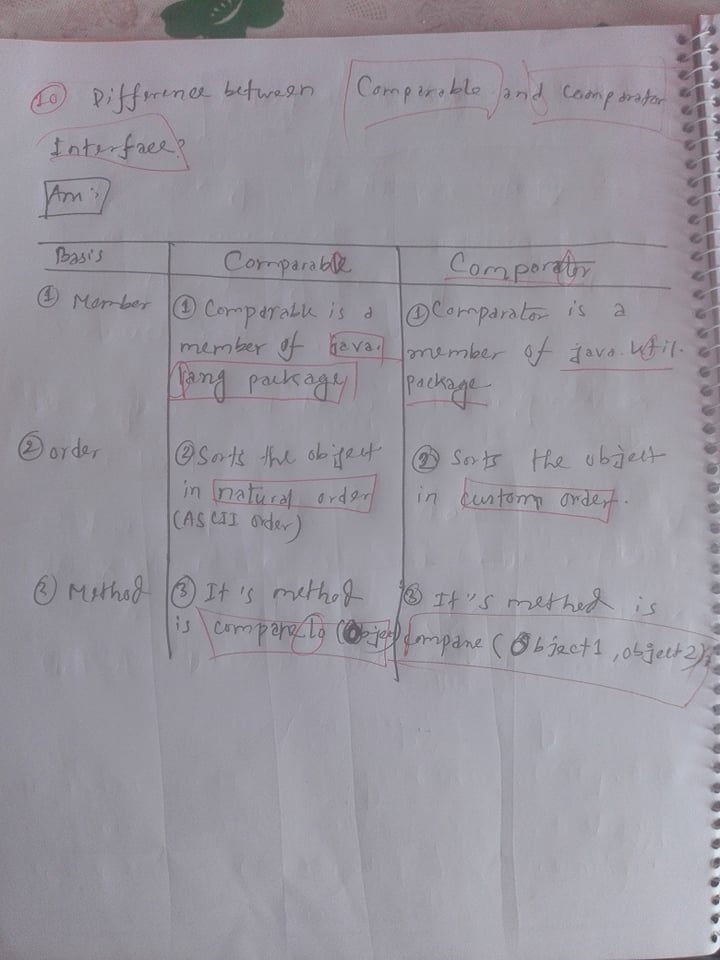 10 Difference between Comparable and Comparator
Interface?
Ans:
Basis Comparable Comparator
① Member
① Comparable is a
member of java.
lang package
① Comparator is a
member of java.util.
package
② order
② Sorts the object
in natural order
(ASCII order)
② Sorts the object
in custom order.
③ Method
③ It's method
is compareto (Object)
③ It's method is
compare (Object1, object2);